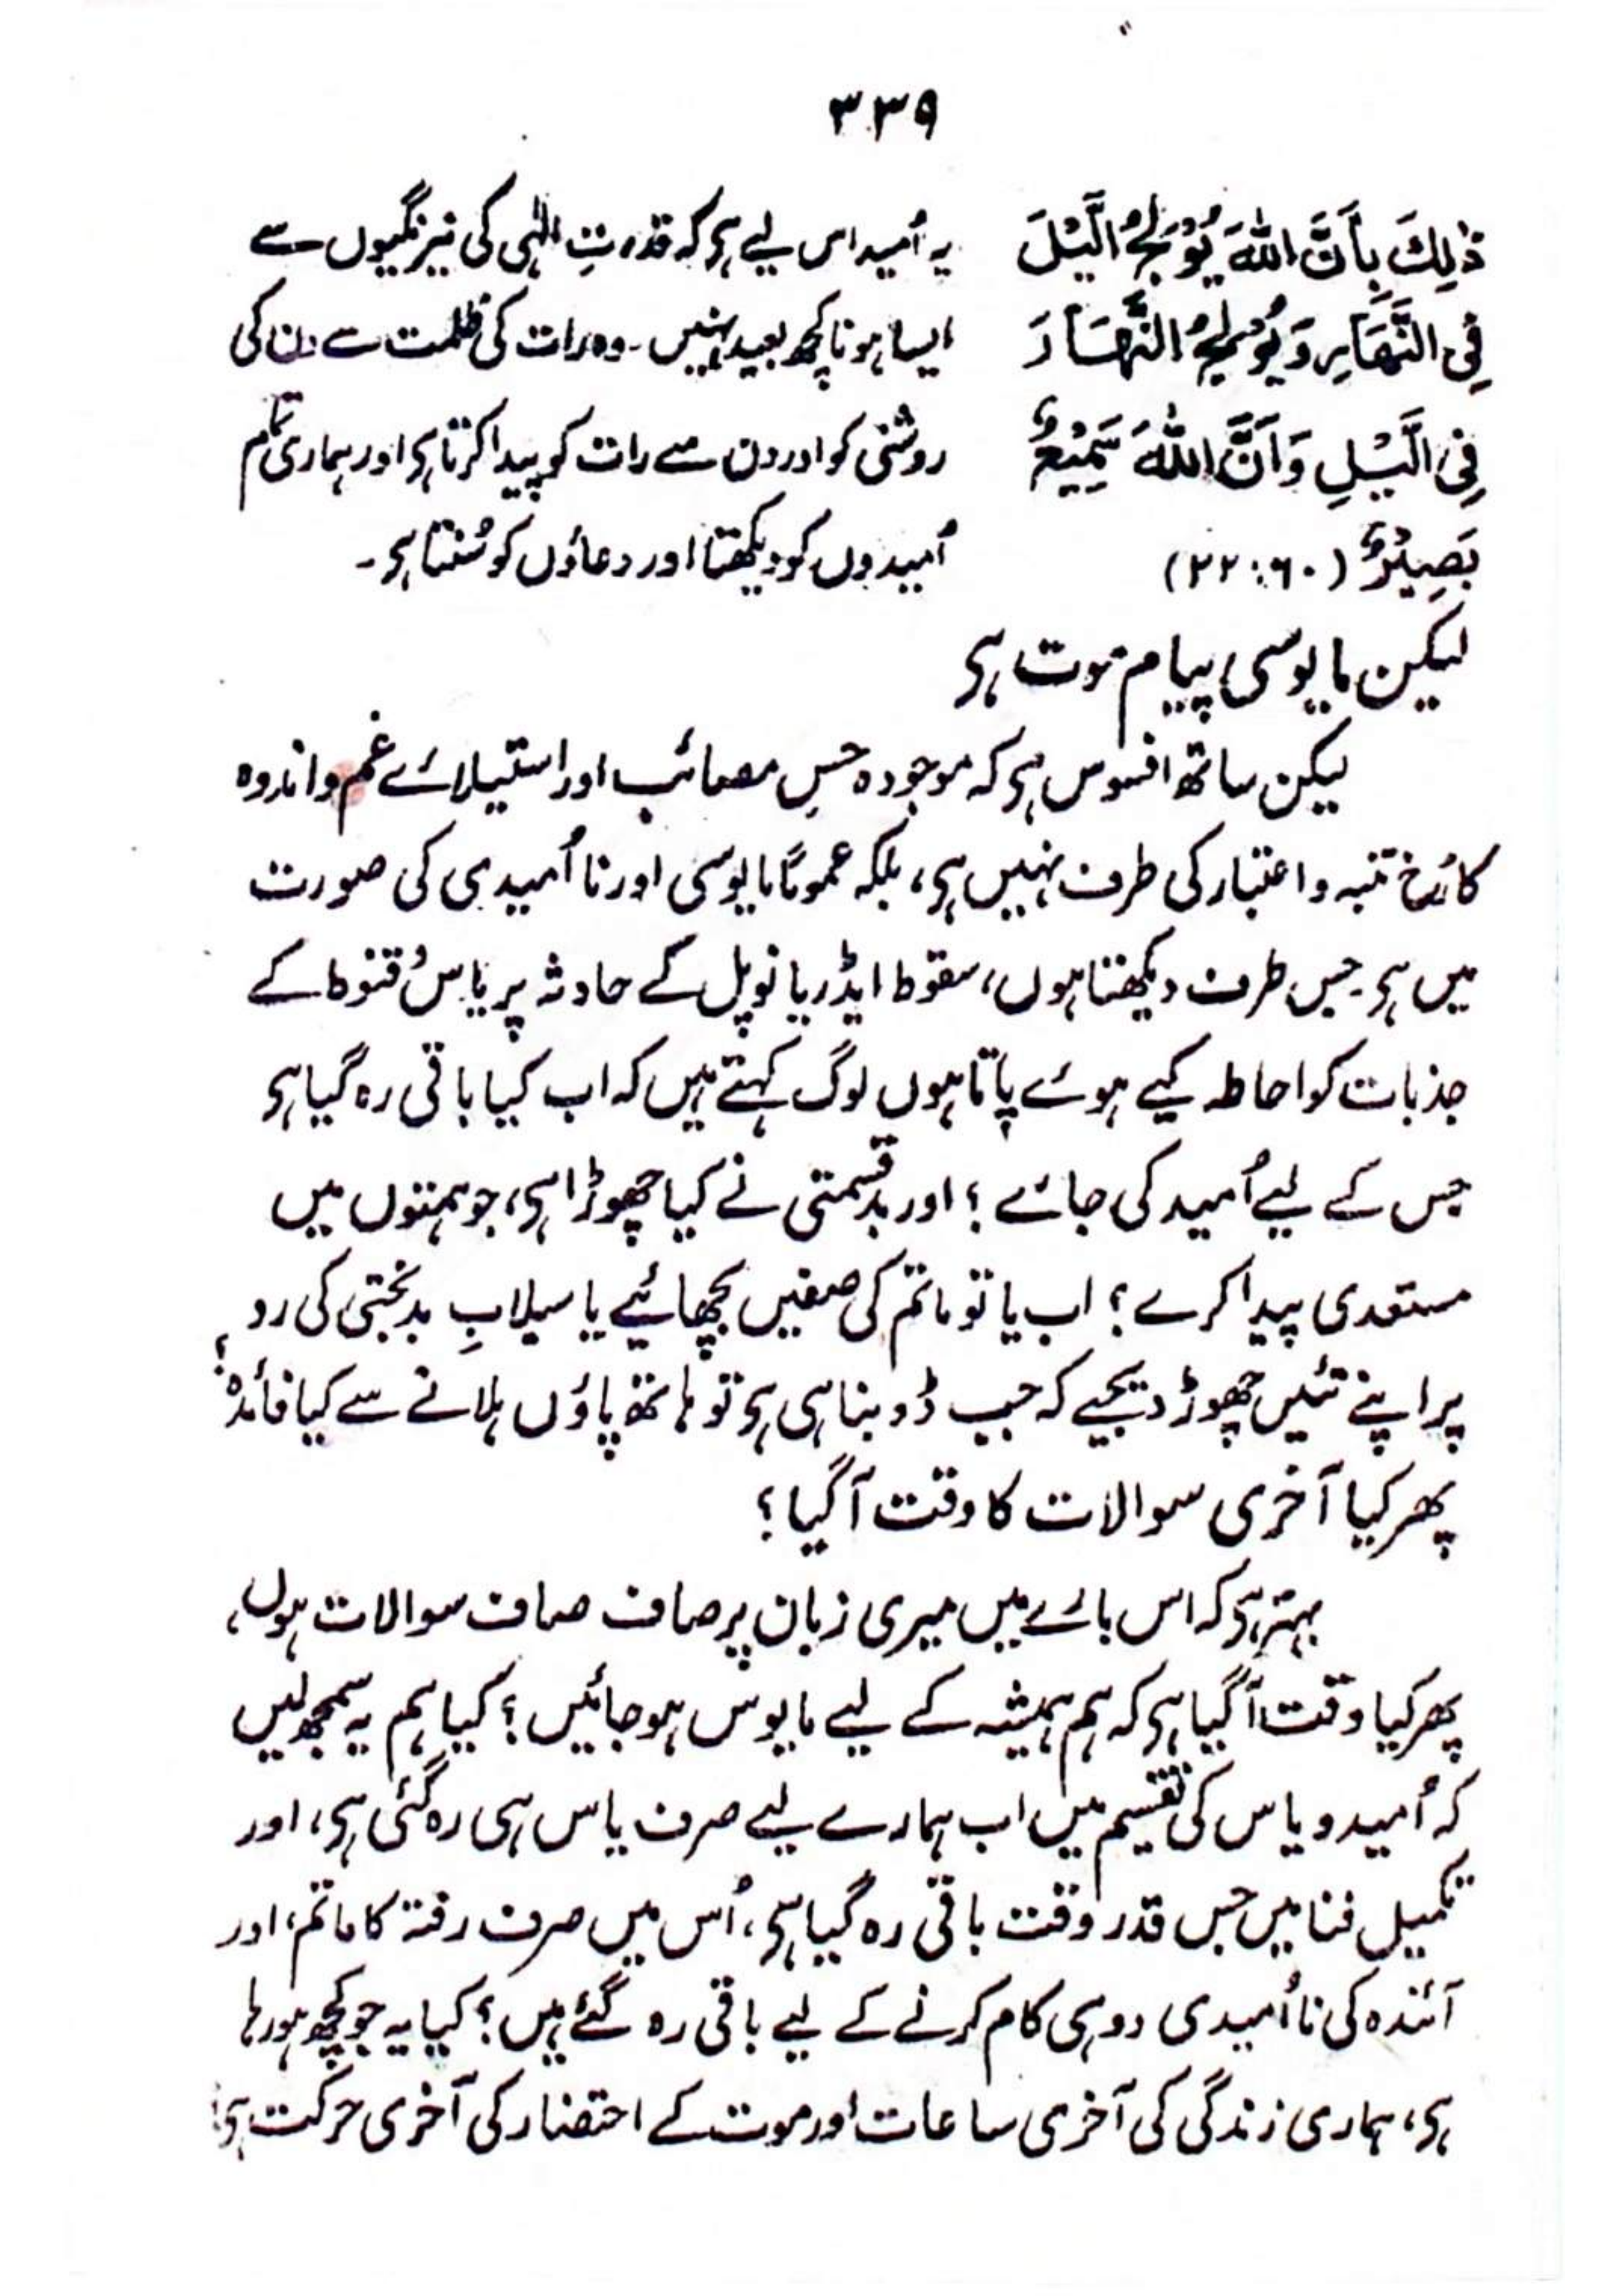 ۳۳۹
ذٰلِكَ بِاَنَّ اللّٰهَ یُوْلِجُ الَّیْلَ
فِی النَّهَارِ وَ یُوْلِجُ النَّهَارَ
فِی الَّیْلِ وَ اَنَّ اللّٰهَ سَمِیْعٌ
بَصِیْرٌ (۲۲:۶۰)
یہ اُمید اس لیے ہی کہ قدرتِ الٰہی کی نیرنگیوں سے
ایسا ہونا کچھ بعید نہیں۔ وہ رات کی ظلمت سے دن کی
روشنی کو اور دن سے رات کو پیدا کرتا ہی اور ہماری تمام
اُمیدوں کو دیکھتا اور دعاؤں کو سُنتا ہی۔
لیکن مایوسی پیام موت ہی
لیکن ساتھ افسوس ہی کہ موجودہ حسِ مصائب اور استیلائے غم و اندوہ
کا رُخ تنبہ و اعتبار کی طرف نہیں ہی، بلکہ عموماً مایوسی اور نا اُمیدی کی صورت
میں ہی۔ جس طرف دیکھتا ہوں، سقوط ایڈریانوپل کے حادثہ پر یاس و قنوط کے
جذبات کو احاطہ کیے ہوئے پاتا ہوں لوگ کہتے ہیں کہ اب کیا باقی رہ گیا ہی
جس کے لیے اُمید کی جائے؟ اور بدقسمتی نے کیا چھوڑا ہی، جو ہمتوں میں
مستعدی پیدا کرے؟ اب یا تو ماتم کی صفیں بچھائیے یا سیلابِ بدبختی کی رو
پر اپنے تئیں چھوڑ دیجیے کہ جب ڈوبنا ہی ہی تو ہاتھ پاؤں ہلانے سے کیا فائدہ؟
پھر کیا آخری سوالات کا وقت آگیا؟
بہتر ہی کہ اس بارے میں میری زبان پر صاف صاف سوالات ہوں،
پھر کیا وقت آگیا ہی کہ ہم ہمیشہ کے لیے مایوس ہو جائیں؟ کیا ہم یہ سمجھ لیں
کہ اُمید و یاس کی تقسیم میں اب ہمارے لیے صرف یاس ہی رہ گئی ہی، اور
تکمیل فنا میں جس قدر وقت باقی رہ گیا ہی، اُس میں صرف رفتہ کا ماتم، اور
آئندہ کی نا اُمیدی دو ہی کام کرنے کے لیے باقی رہ گئے ہیں؟ کیا یہ جو کچھ ہو رہا
ہی، ہماری زندگی کی آخری ساعات اور موت کے احتضار کی آخری حرکت ہی؟